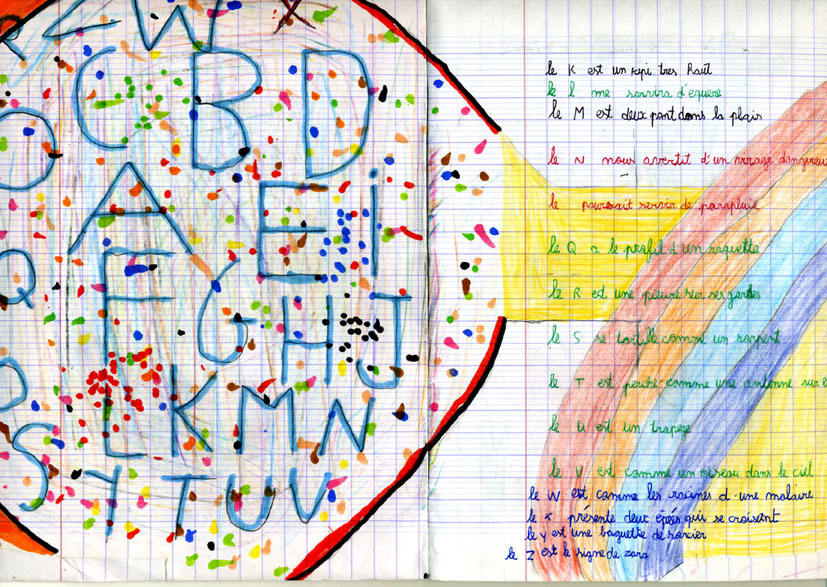 R Z W X
O C B D
A E i
Q F G H J
P L K M N
S 1 T U V
le K est un képi tres haut
le l me servira d'équere
le M est deux pont dans la plais
le N nous avertit d'un virage dangereux
le pourrait servir de parapluie
le Q a le profil d'un raquette
le R est une piture sur ses gardes
le S se tortille comme un serpent
le T est perché comme une antenne sur l
le U est un trapeze
le V est comme un oiseau dans le ciel
le W est comme les racines d'une molaire
le X présente deux épées qui se croisent
le y est une baguette de sorcier
le Z est le signe de zoro